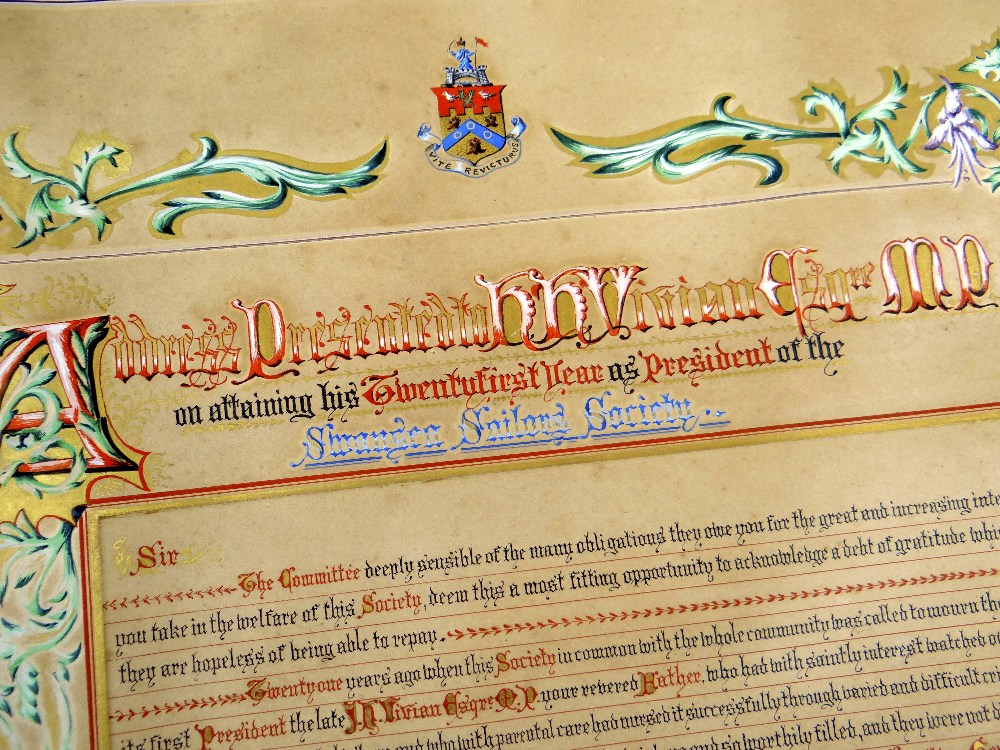 VITE REVICTURUS
Address Presented to H H Vivian Esqre M P
on attaining his Twentyfirst Year as President of the
Swansea Sailors Society
Sir
The Committee deeply sensible of the many obligations they owe you for the great and increasing inte
you take in the welfare of this Society, deem this a most fitting opportunity to acknowledge a debt of gratitude whi
they are hopeless of being able to repay.
Twentyone years ago when this Society in common with the whole community was called to mourn th
its first President the late J.H. Vivian Esqre M.P. your revered Father, who had with saintly interest watched o
and who with parental care had nursed it successfully through varied and difficult cri
and so worthily filled, and they were not